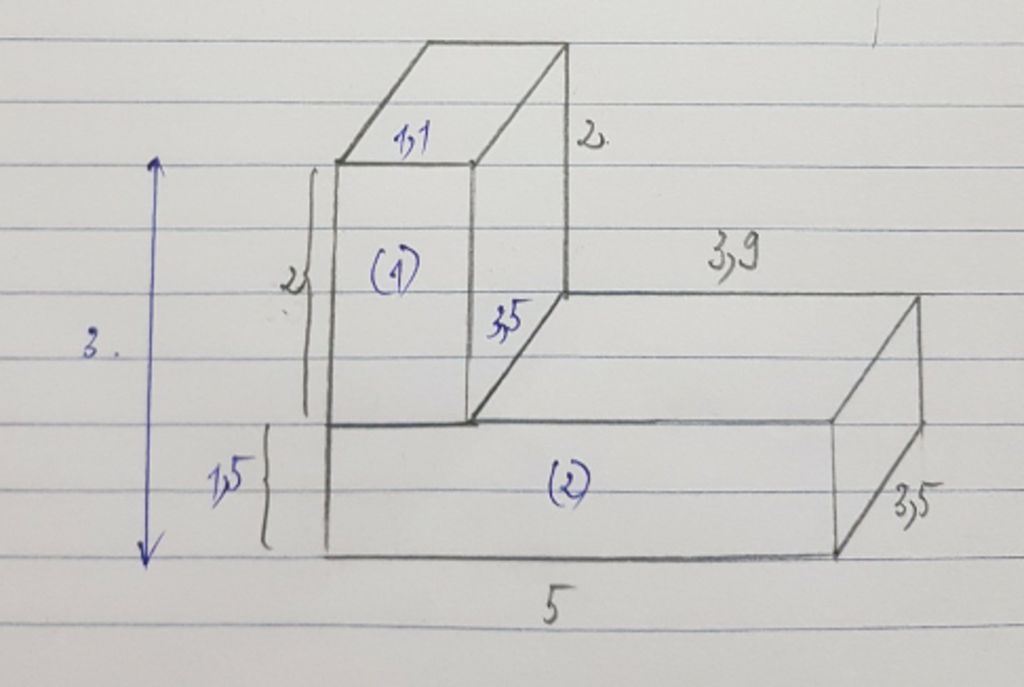 1,1
2
2
(1)
3,9
3,5
3.
1,5
(2)
3,5
5